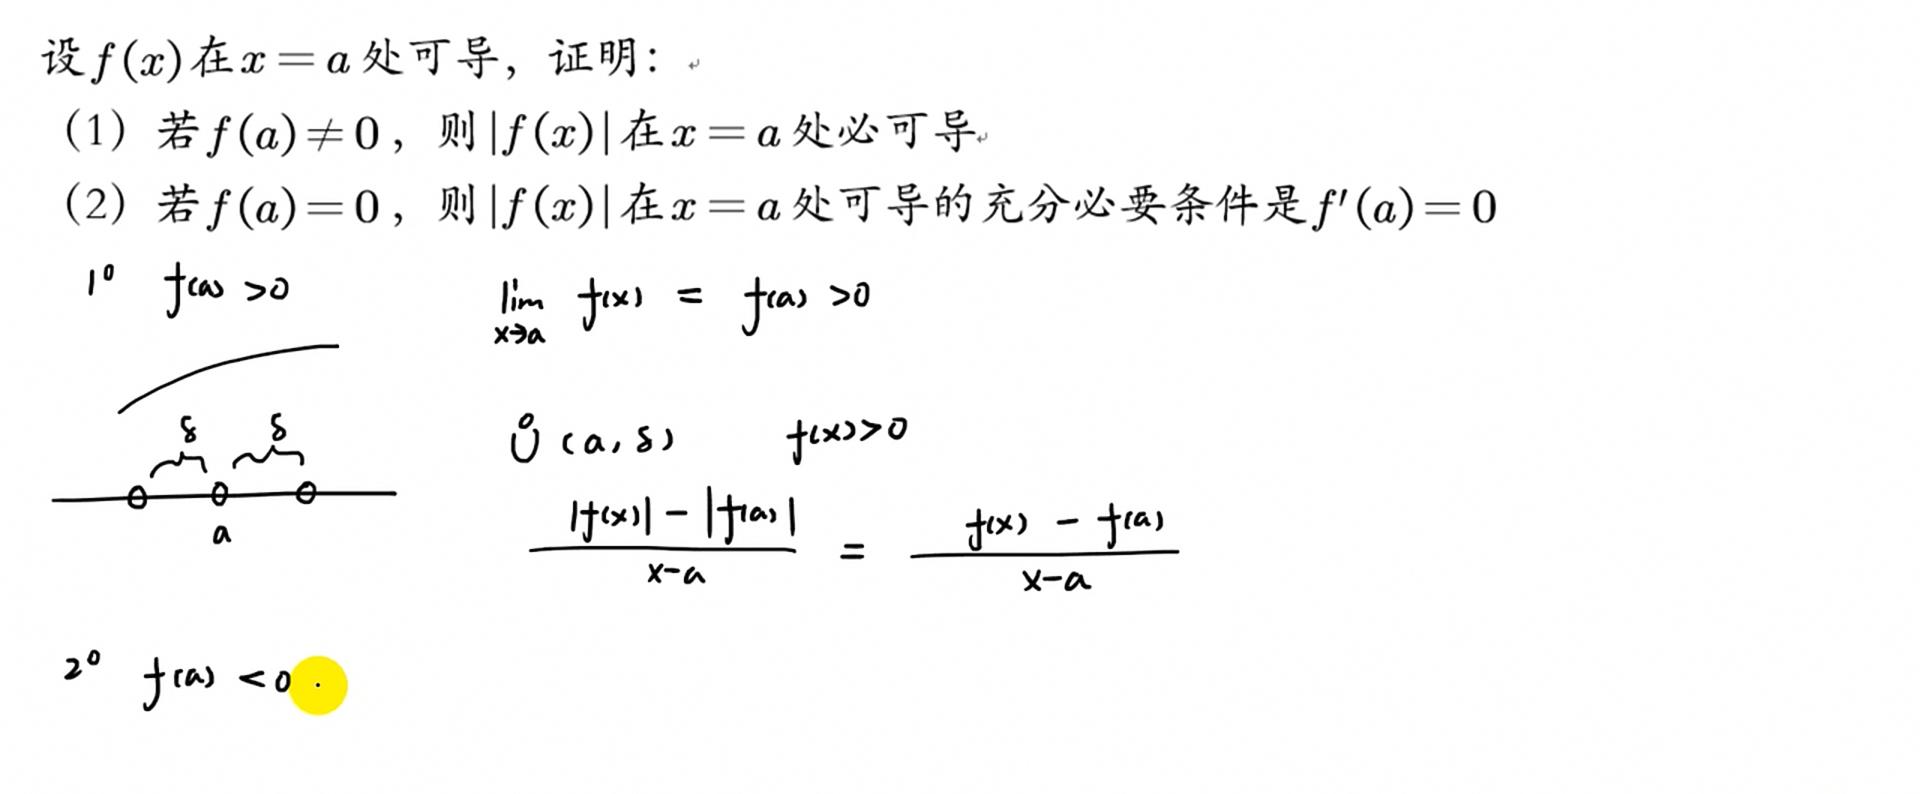 设f(x)在x=a处可导，证明：
（1）若f(a)≠0，则|f(x)|在x=a处必可导
（2）若f(a)=0，则|f(x)|在x=a处可导的充分必要条件是f′(a)=0
1⁰ f(a)>0 lim x→a f(x) = f(a) >0
δ δ
Ů (a,δ) f(x)>0
a
|f(x)|-|f(a)| / x-a = f(x)-f(a) / x-a
2⁰ f(a)<0